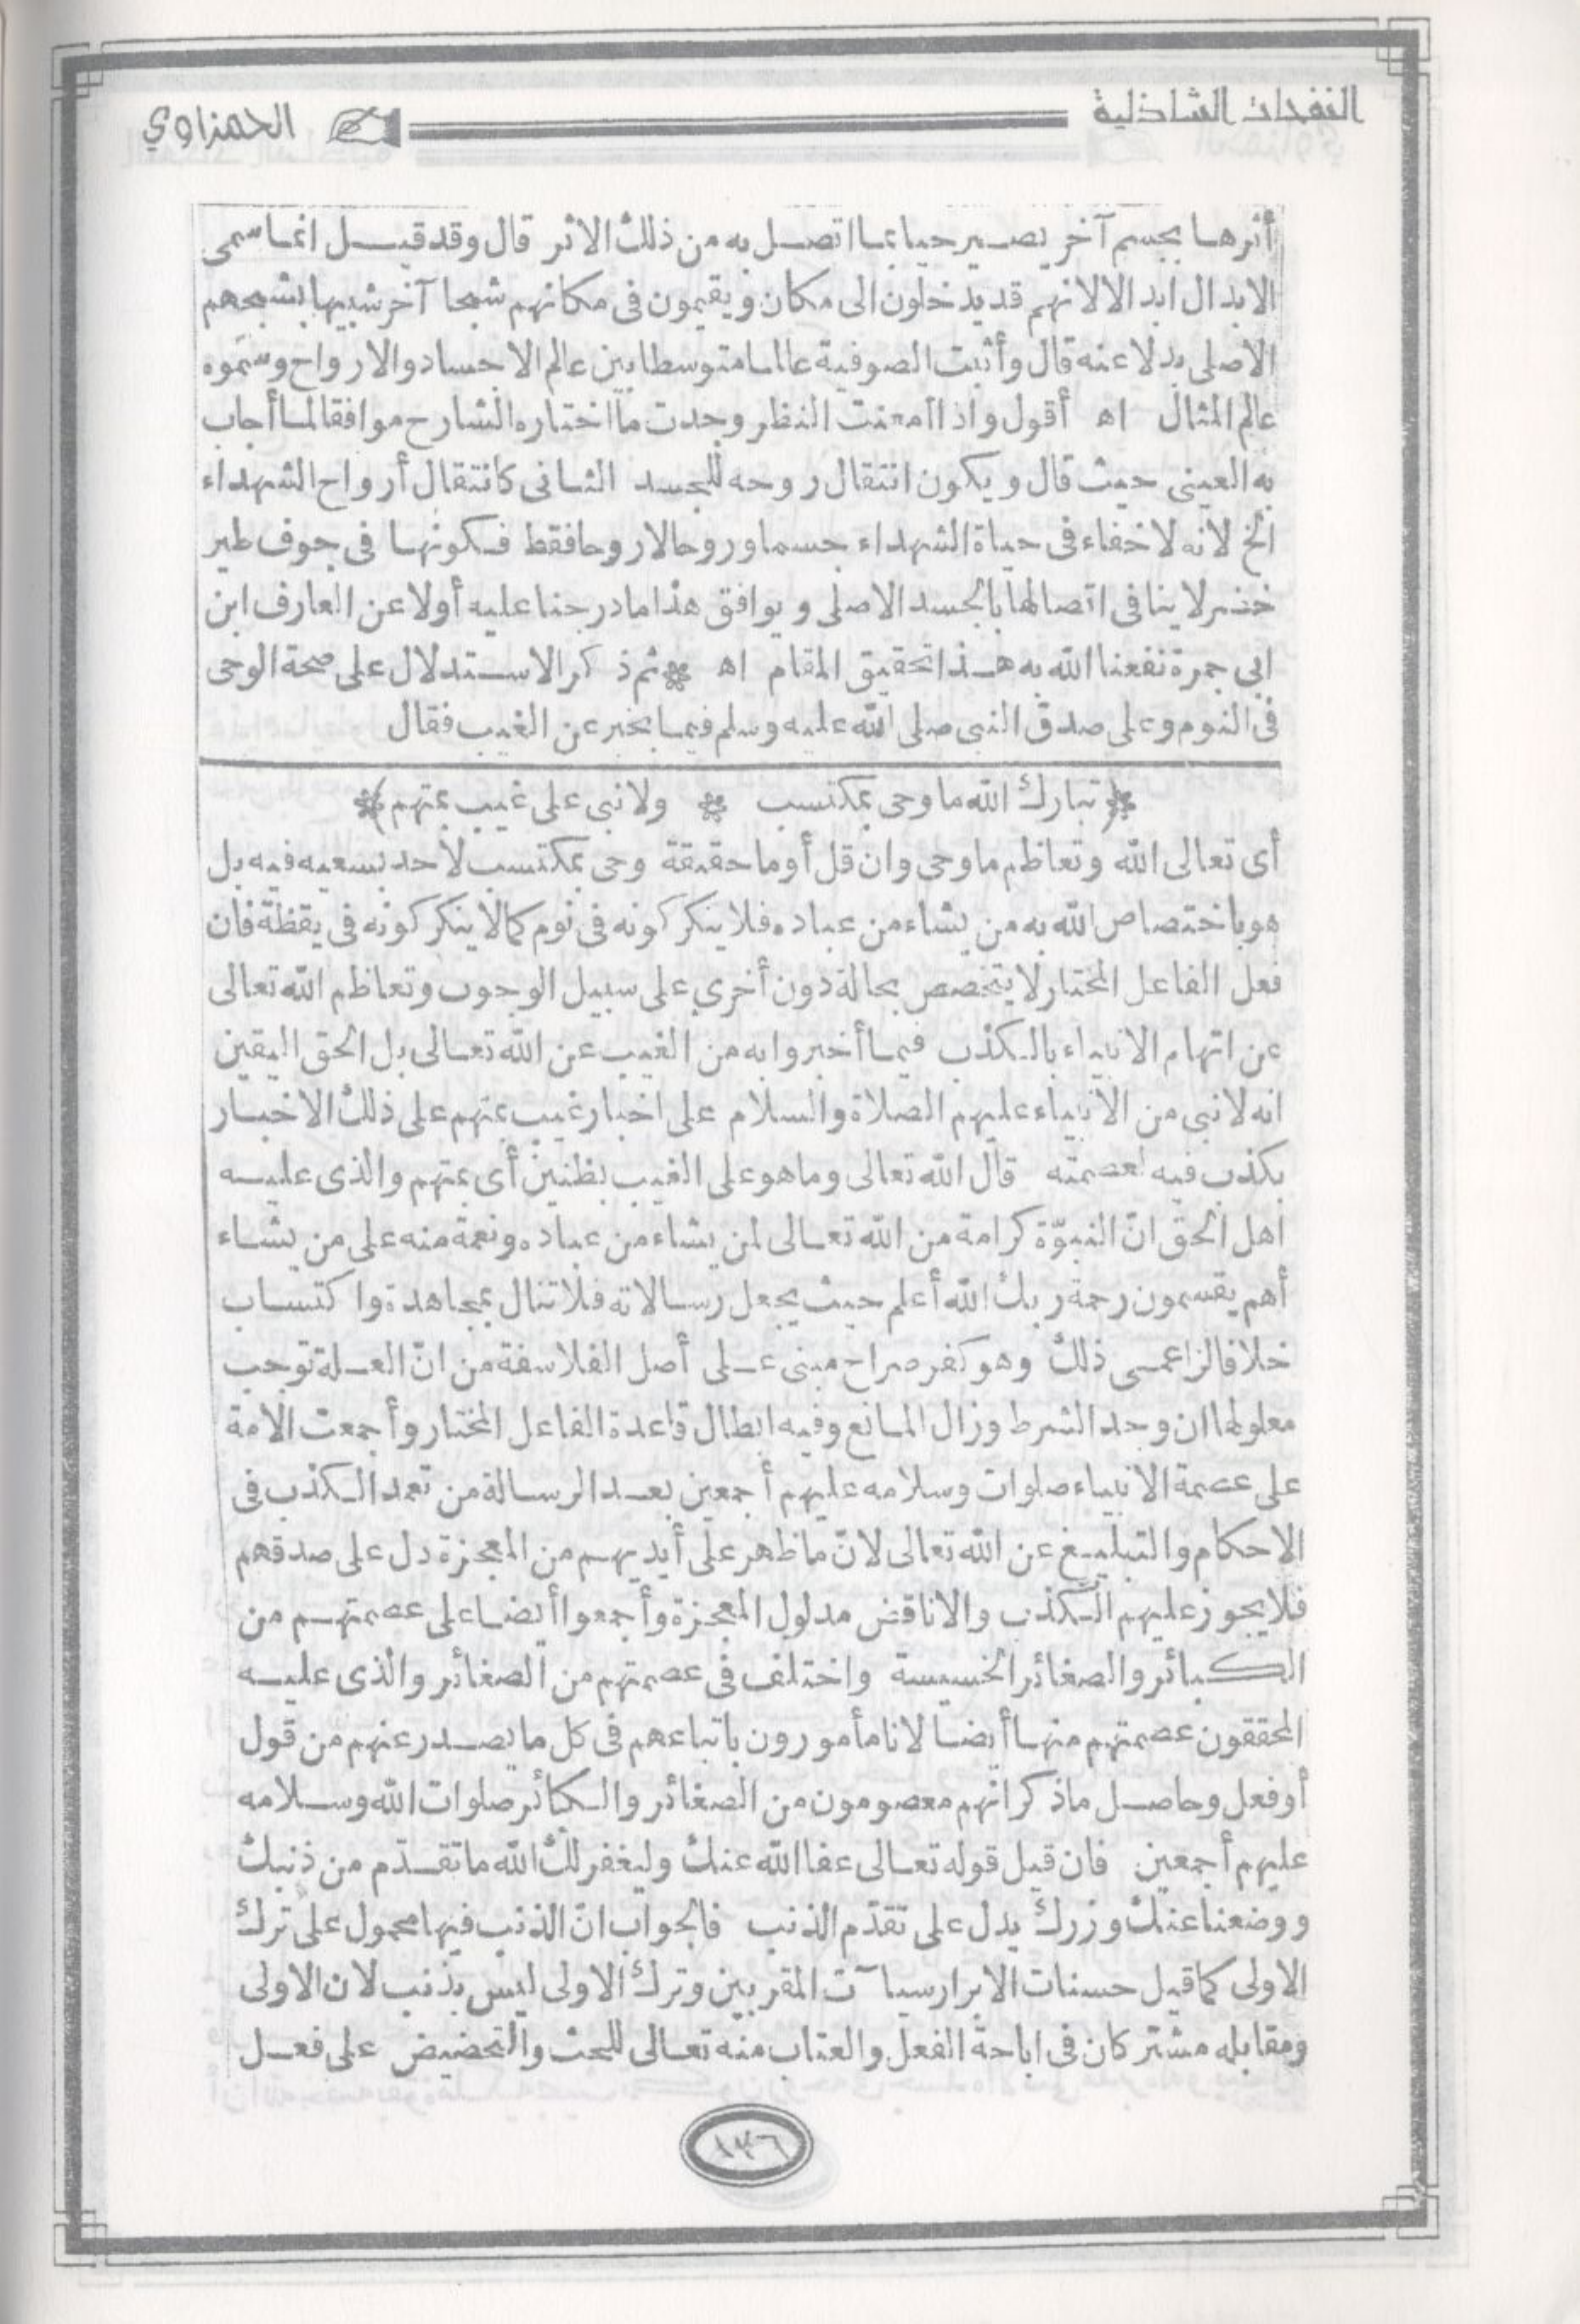 النفحات الشاذلية
الحمزاوي
أثرها بجسم آخر يصير حيا بما اتصل به من ذلك الاثر قال وقد قيل انما سمى
الابدال ابدالا لانهم قد يدخلون الى مكان ويقيمون فى مكانهم شبحا آخر شبيها بشبحهم
الاصلى بدلا عنه قال وأثبت الصوفية عالما متوسطا بين عالم الاجساد والارواح وسموه
عالم المثال اه أقول واذا أمعنت النظر وجدت ما اختاره الشارح موافقا لما أجاب
به العينى حيث قال ويكون انتقال روحه للجسد الثانى كانتقال أرواح الشهداء
الخ لانه لا خفاء فى حياة الشهداء جسما وروحا لا روحا فقط فكونها فى جوف طير
خضر لا ينافى اتصالها بالجسد الاصلى ويوافق هذا ما درجنا عليه أولا عن العارف ابن
ابى جمرة نفعنا الله به هذا تحقيق المقام اه ثم ذكر الاستدلال على صحة الوحى
فى النوم وعلى صدق النبى صلى الله عليه وسلم فيما يخبر عن الغيب فقال
(تبارك الله ما وحى بمكتسب ولا نبى على غيب بمتهم)
أى تعالى الله وتعاظم ما وحى وان قل أو ما حقيقة وحى بمكتسب لاحد بسعيه فيه بل
هو باختصاص الله به من يشاء من عباده فلا ينكر كونه فى نوم كما لا ينكر كونه فى يقظة فان
فعل الفاعل المختار لا يتخصص بحالة دون أخرى على سبيل الوجوب وتعاظم الله تعالى
عن اتهام الانبياء بالكذب فيما أخبروا به من الغيب عن الله تعالى بل الحق اليقين
انه لا نبى من الانبياء عليهم الصلاة والسلام على اخبار غيب بمتهم على ذلك الاخبار
بكذب فيه لعصمته قال الله تعالى وما هو على الغيب بظنين أى بمتهم والذى عليه
اهل الحق انّ النبوّة كرامة من الله تعالى لمن يشاء من عباده ونعمة منه على من يشاء
أهم يقسمون رحمة ربك الله أعلم حيث يجعل رسالاته فلا تنال بمجاهدة واكتساب
خلافا لزاعمى ذلك وهو كفر صراح مبنى على أصل الفلاسفة من انّ العلة توجب
معلولها ان وجد الشرط وزال المانع وفيه ابطال قاعدة الفاعل المختار وأجمعت الامة
على عصمة الانبياء صلوات وسلامه عليهم أجمعين بعد الرسالة من تعمد الكذب فى
الاحكام والتبليغ عن الله تعالى لانّ ما ظهر على أيديهم من المعجزة دل على صدقهم
فلا يجوز عليهم الكذب والا ناقض مدلول المعجزة وأجمعوا أيضا على عصمتهم من
الكبائر والصغائر الخسيسة واختلف فى عصمتهم من الصغائر والذى عليه
المحققون عصمتهم منها أيضا لانا مأمورون باتباعهم فى كل ما يصدر عنهم من قول
أو فعل وحاصل ما ذكر انهم معصومون من الصغائر والكبائر صلوات الله وسلامه
عليهم أجمعين فان قيل قوله تعالى عفا الله عنك وليغفر لك الله ما تقدّم من ذنبك
ووضعنا عنك وزرك يدل على تقدّم الذنب فالجواب انّ الذنب فيها محمول على ترك
الاولى كما قيل حسنات الابرار سيآت المقربين وترك الاولى ليس بذنب لان الاولى
ومقابله مشتركان فى اباحة الفعل والعتاب منه تعالى للحث والتحضيض على فعل
١٣٦